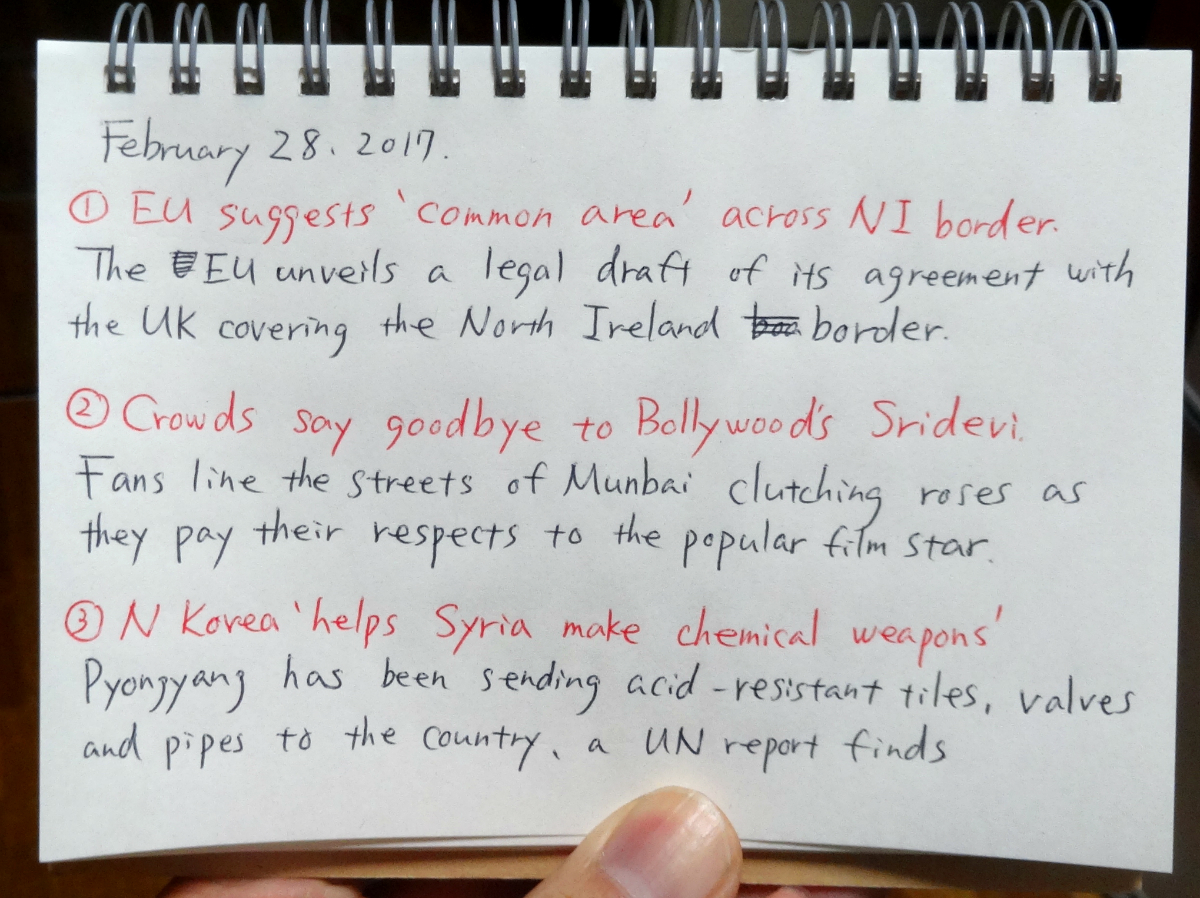 February 28. 2017.
① EU suggests 'common area' across NI border.
The EU unveils a legal draft of its agreement with
the UK covering the North Ireland border.
② Crowds say goodbye to Bollywood's Sridevi.
Fans line the streets of Munbai clutching roses as
they pay their respects to the popular film star.
③ N Korea 'helps Syria make chemical weapons'
Pyongyang has been sending acid-resistant tiles, valves
and pipes to the country, a UN report finds